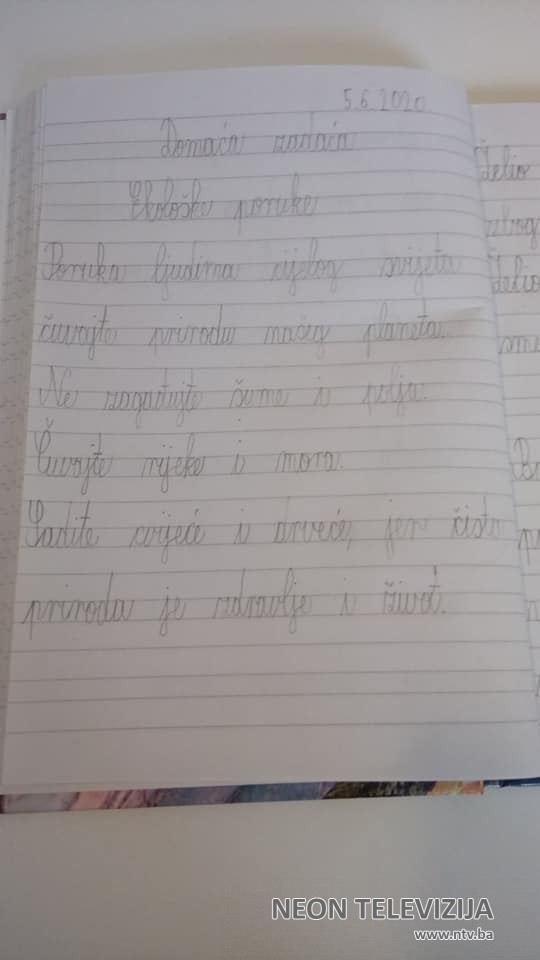 5.6.2020
Domaća zadaća
Ekološke poruke
Poruka ljudima cijelog svijeta
čuvajte prirodu našeg planeta.
Ne zagađujte šume i polja.
Čuvajte rijeke i mora.
Sadite cvijeće i drveće, jer čista
priroda je zdravlje i život.
Želio
zbog
Želio
NEON TELEVIZIJA
www.ntv.ba